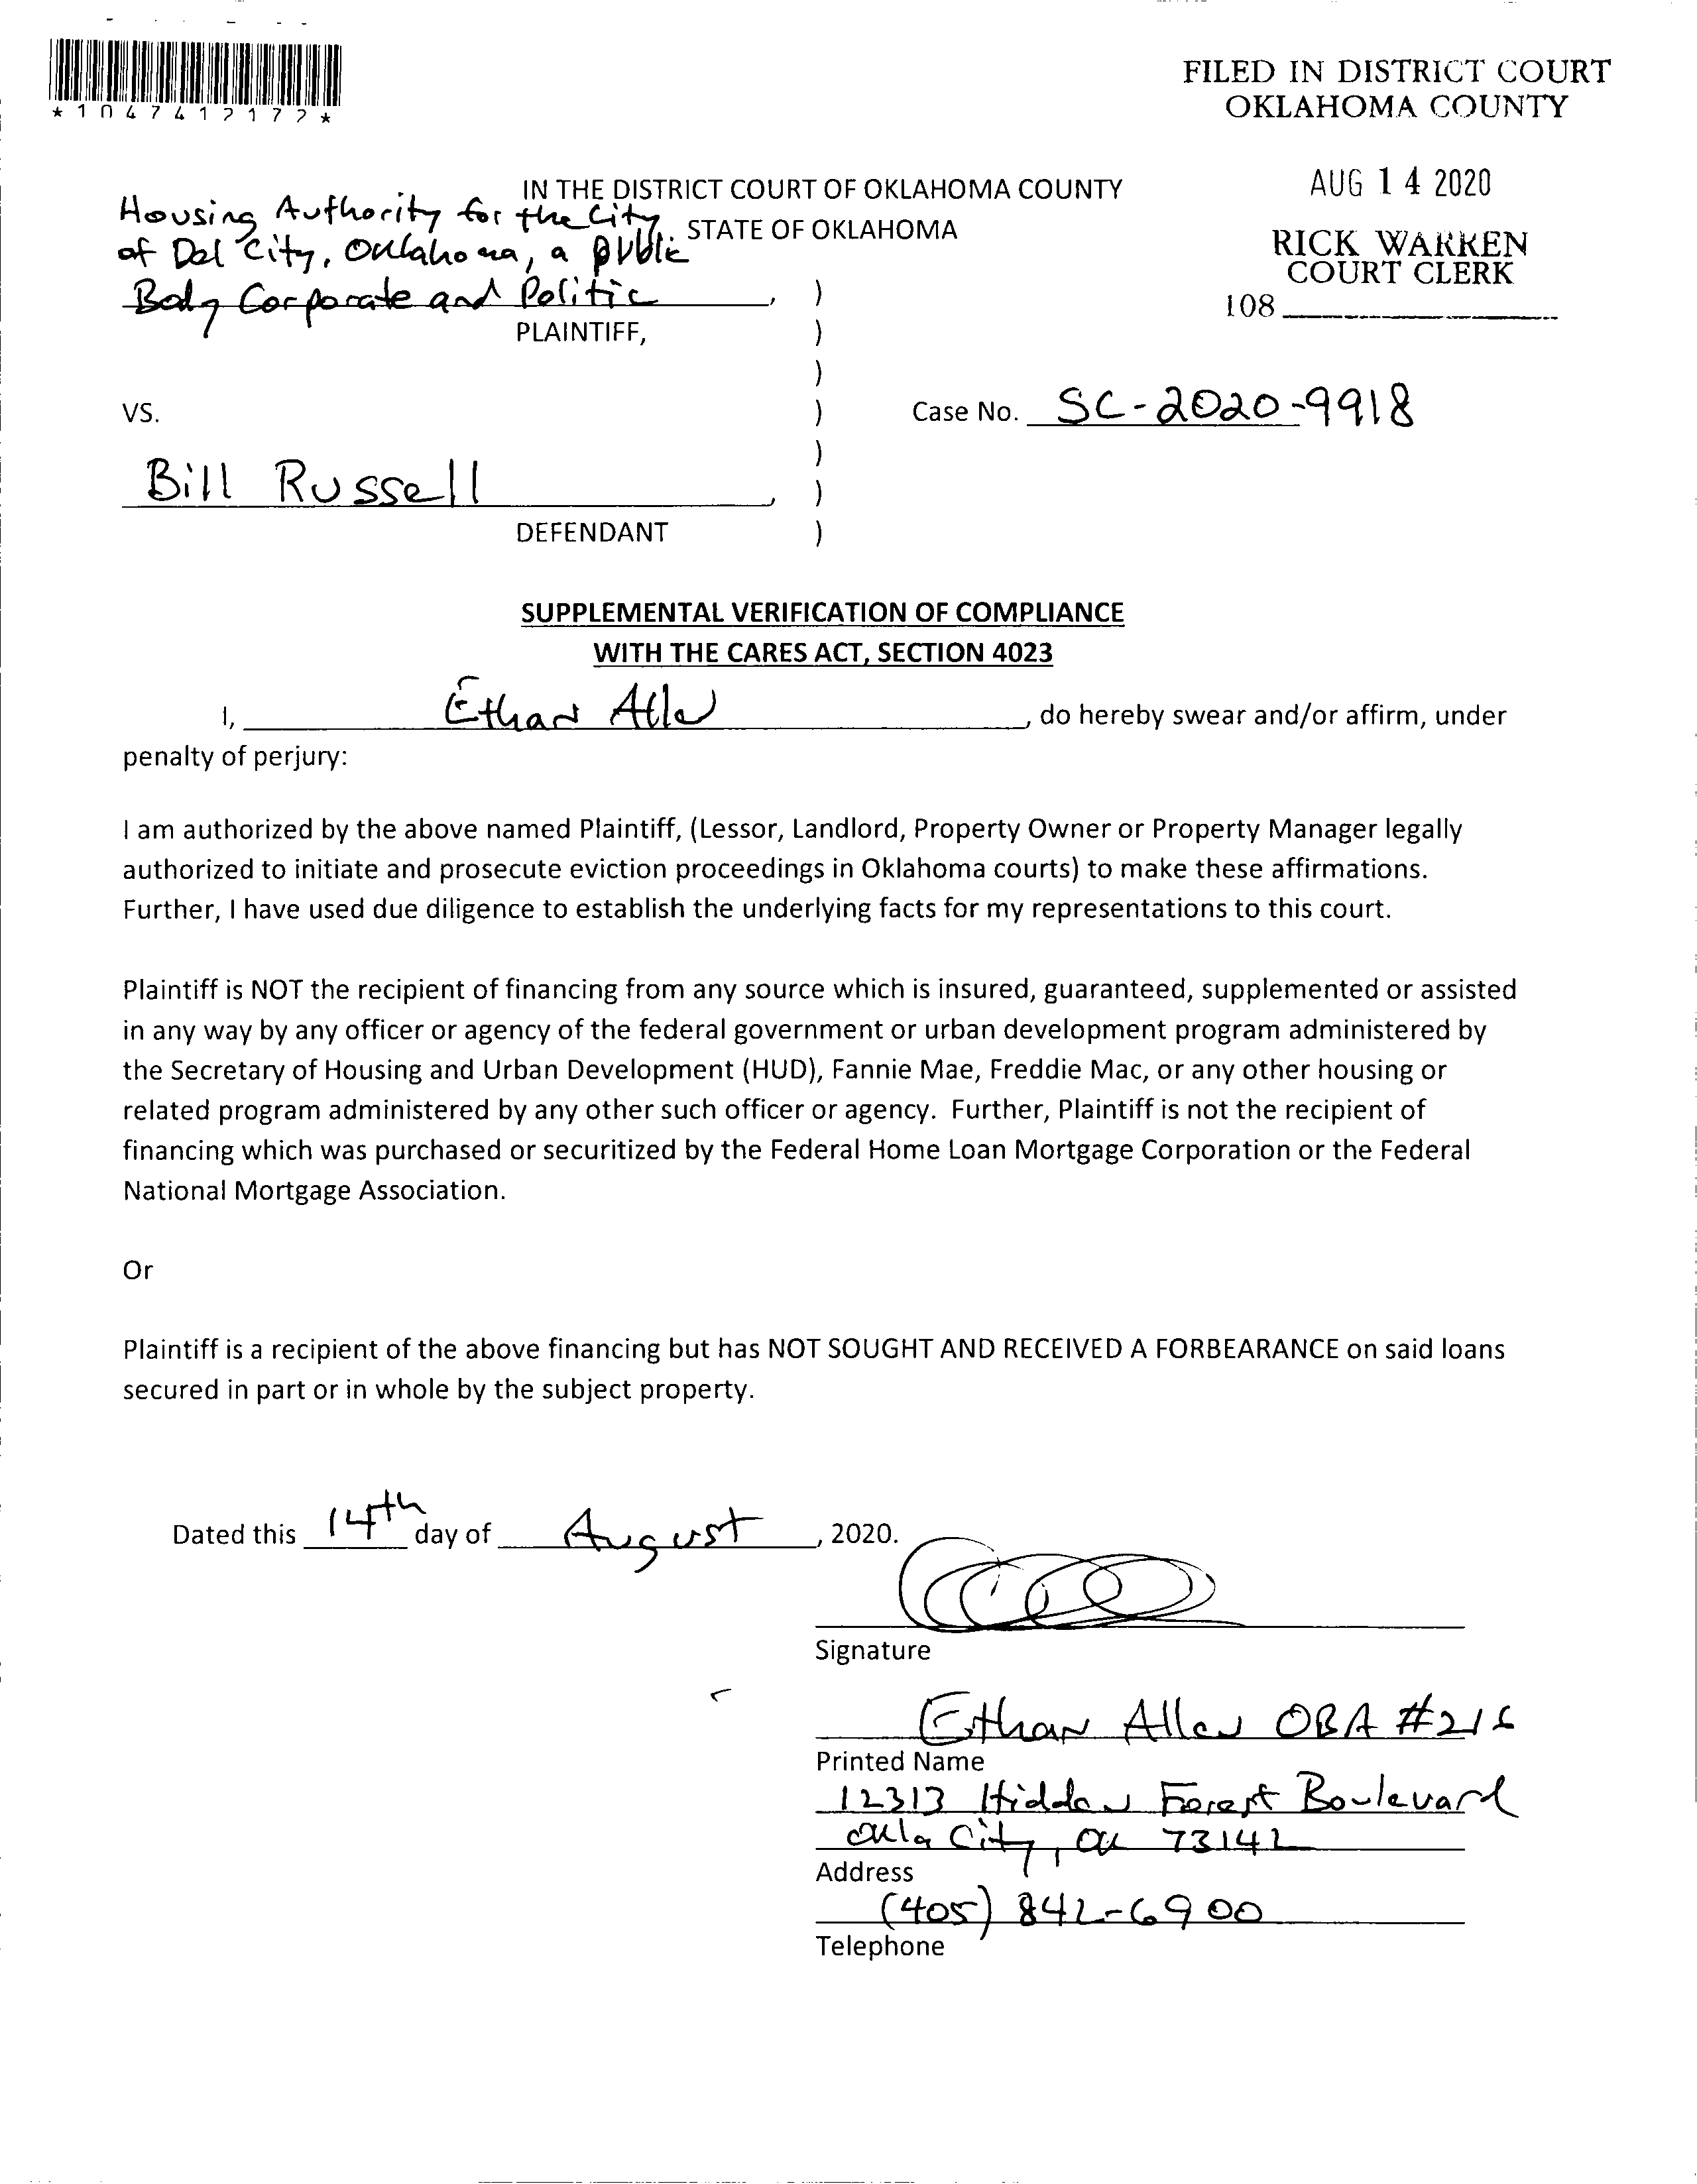 *1047412172*
FILED IN DISTRICT COURT
OKLAHOMA COUNTY
AUG 14 2020
RICK WARREN
COURT CLERK
108
IN THE DISTRICT COURT OF OKLAHOMA COUNTY
STATE OF OKLAHOMA
Housing Authority for the City
of Del City, Oklahoma, a public
Body Corporate and Politic, )
PLAINTIFF, )
)
VS. ) Case No. SC-2020-9918
)
Bill Russell, )
DEFENDANT )
SUPPLEMENTAL VERIFICATION OF COMPLIANCE
WITH THE CARES ACT, SECTION 4023
I, Ethan Allen, do hereby swear and/or affirm, under
penalty of perjury:
I am authorized by the above named Plaintiff, (Lessor, Landlord, Property Owner or Property Manager legally
authorized to initiate and prosecute eviction proceedings in Oklahoma courts) to make these affirmations.
Further, I have used due diligence to establish the underlying facts for my representations to this court.
Plaintiff is NOT the recipient of financing from any source which is insured, guaranteed, supplemented or assisted
in any way by any officer or agency of the federal government or urban development program administered by
the Secretary of Housing and Urban Development (HUD), Fannie Mae, Freddie Mac, or any other housing or
related program administered by any other such officer or agency. Further, Plaintiff is not the recipient of
financing which was purchased or securitized by the Federal Home Loan Mortgage Corporation or the Federal
National Mortgage Association.
Or
Plaintiff is a recipient of the above financing but has NOT SOUGHT AND RECEIVED A FORBEARANCE on said loans
secured in part or in whole by the subject property.
Dated this 14th day of August, 2020.
Signature
Ethan Allen OBA #216
Printed Name
12313 Hidden Forest Boulevard
Okla City, OK 73142
Address
(405) 842-6900
Telephone